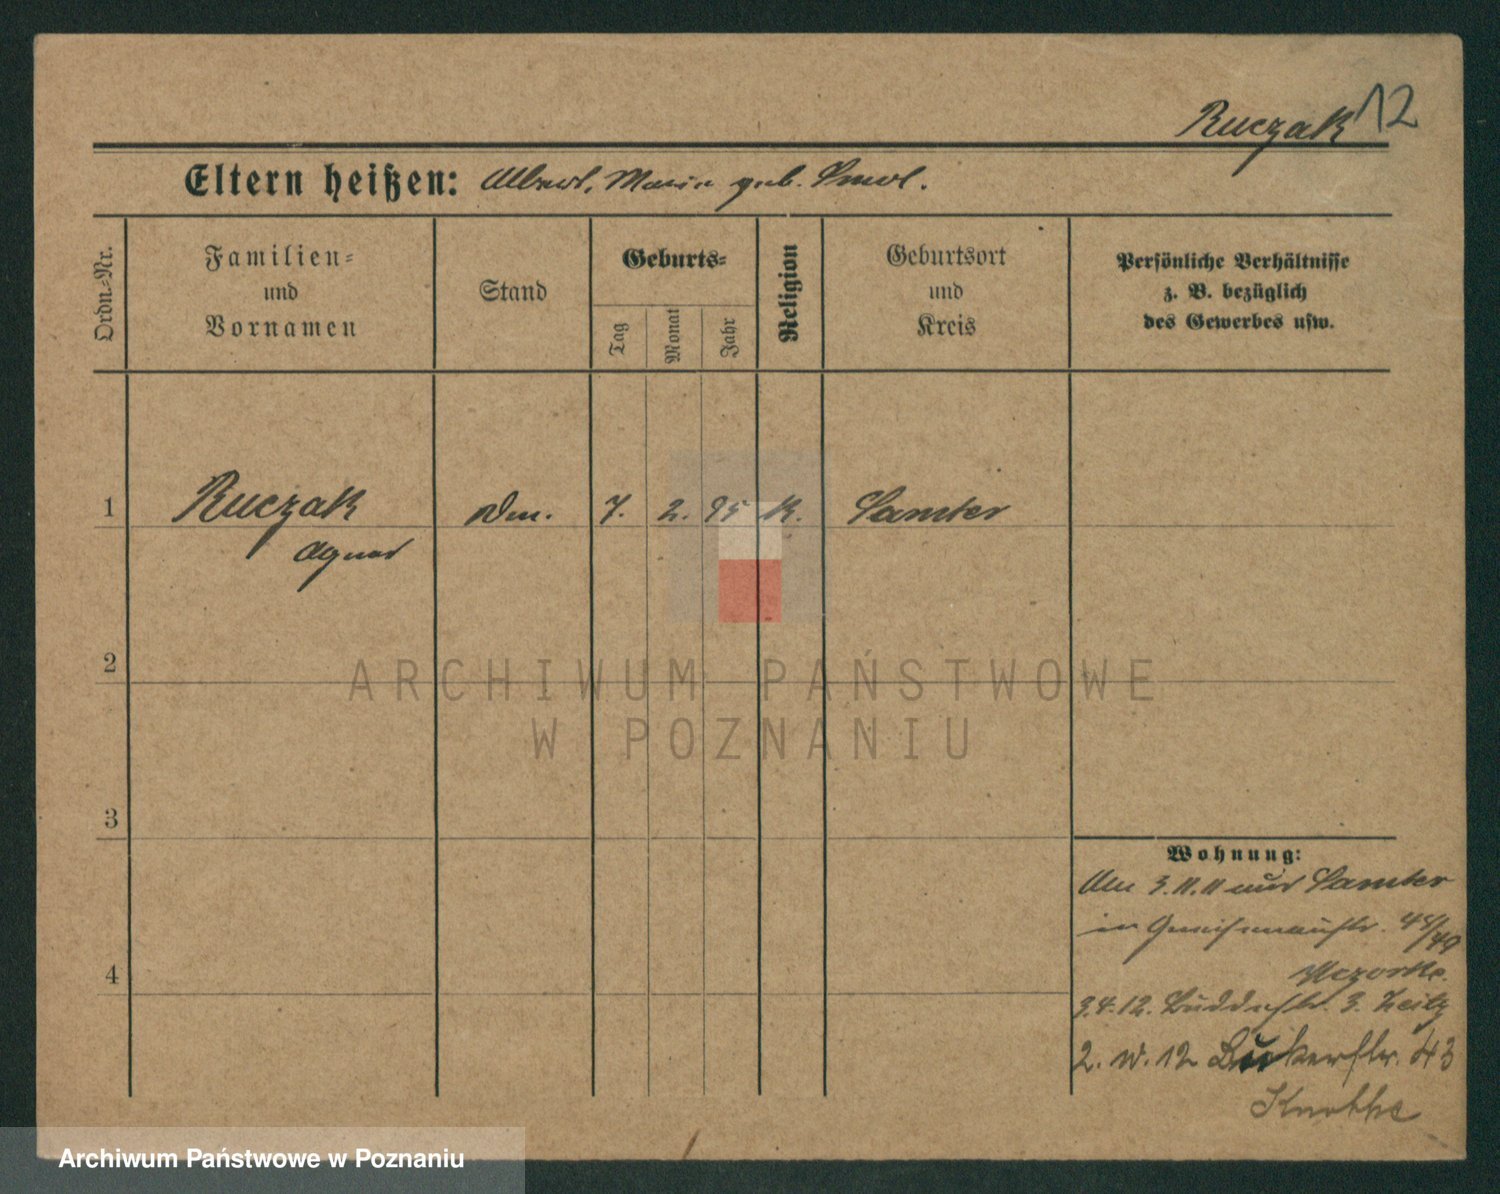 Ruczak 12
Eltern heißen: Albert, Maria geb.
Ordn.-Nr.
Familien-
und
Vornamen
Stand
Geburts-
Tag
Monat
Jahr
Religion
Geburtsort
und
Kreis
Persönliche Verhältnisse
z. B. bezüglich
des Gewerbes usw.
1 Ruczak 7. 2. 95 K. Samter
Agnes
2
3
4
Wohnung:
Am 3.11.11 aus Samter
in Gneisenaustr.
3.4.12. 3.
2. 12 Bukerstr. 43
Knothe
ARCHIWUM PAŃSTWOWE
W POZNANIU
Archiwum Państwowe w Poznaniu